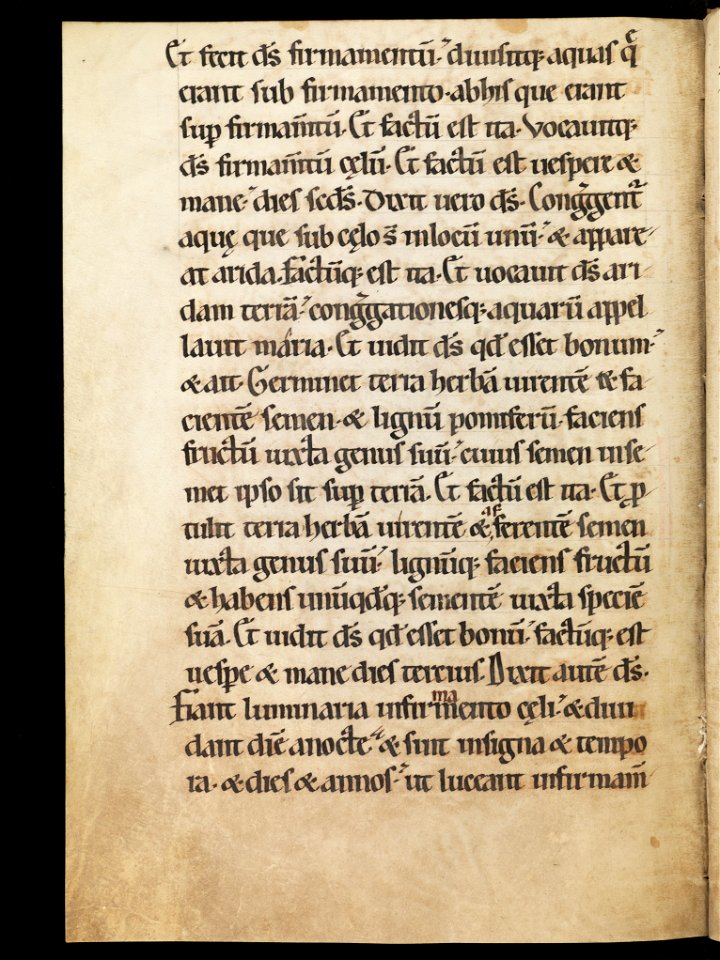 Et fecit ds̄ firmamentū. diuisitq; aquas q̄
erant sub firmamento. abhis que erant
sup̱ firmam̄tū. Et factū est ita. Vocauitq;
ds̄ firmam̄tū cęlū. Et factū est uespere &
mane. dies scd̄s. Dixit uero ds̄. Congḡgent᷑
aquę que sub cęlo s̄ inlocū unū. & appare
at arida. Factūq; est ita. Et uocauit ds̄ ari
dam terrā. congḡgationesq; aquarū appel
lauit maria. Et uidit ds̄ qd̄ esset bonum.
& ait. Germinet terra herbā uirentē & fa
cientē semen. & lignū pomiferū. faciens
fructū iuxta genus suū. cuius semen inse
met ipso sit sup̱ terrā. Et factū est ita. Et ꝓ
tulit terra herbā uirentē & afferentē semen
iuxta genus suū. lignūq; faciens fructū
& habens unūqd̄q; sementē iuxta speciē
suā. Et uidit ds̄ qd̄ esset bonū. factūq; est
uesp̱e & mane dies tercius. Dixit autē ds̄.
Fiant luminaria infirmamento cęli. & diui
dant diē anocte. & sint insigna & tempo
ra. & dies & annos. ut luceant infirmam̄